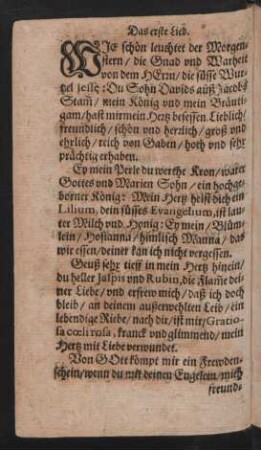 Das erste Lied.
WIE schön leuchtet der Morgen-
stern / die Gnad vnd Warheit
von dem HErrn / die süsse Wur-
tzel Jesse: Du Sohn Davids auß Jacobs
Stam̃ / mein König vnd mein Bräuti-
gam / hast mir mein Hertz besessen. Lieblich /
freundlich / schön vnd herrlich / groß vnd
ehrlich / reich von Gaben / hoch vnd sehr
prächtig erhaben.
Ey mein Perle du werthe Kron / warer
Gottes vnd Marien Sohn / ein hochge-
borner König: Mein Hertz heist dich ein
Lilium, dein süsses Evangelium, ist lau-
ter Milch vnd Honig: Ey mein / Blüm-
lein / Hosianna / himlisch Manna / das
wir essen / deiner kan ich nicht vergessen.
Geuß sehr tieff in mein Hertz hinein /
du heller Jaspis vnd Rubin, die Flam̃e dei-
ner Liebe / vnd erfrew mich / daß ich doch
bleib / an deinem außerwehlten Leib / ein
lebendige Riebe / nach dir / ist mir / Gratio-
sa cœli rosa, kranck vnd glimmend / mein
Hertz mit Liebe verwundet.
Von GOtt kömpt mir ein Frewden-
schein / wenn du mit deinen Eugelein / mich
freund-